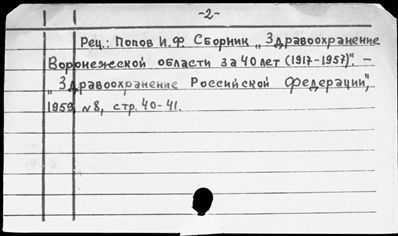 -2-
Рец.: Попов И.Ф. Сборник „Здравоохранение
Воронежской области за 40 лет (1917-1957)". –
„Здравоохранение Российской Федерации",
1959, №8, стр. 40-41.